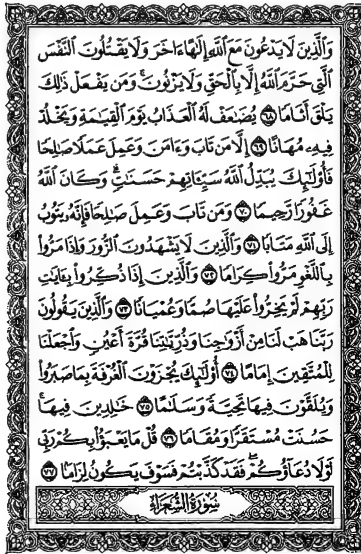 وَٱلَّذِينَ لَا يَدْعُونَ مَعَ ٱللَّهِ إِلَٰهًا ءَاخَرَ وَلَا يَقْتُلُونَ ٱلنَّفْسَ
ٱلَّتِي حَرَّمَ ٱللَّهُ إِلَّا بِٱلْحَقِّ وَلَا يَزْنُونَ ۚ وَمَن يَفْعَلْ ذَٰلِكَ
يَلْقَ أَثَامًا ۝٦٨ يُضَٰعَفْ لَهُ ٱلْعَذَابُ يَوْمَ ٱلْقِيَٰمَةِ وَيَخْلُدْ
فِيهِۦ مُهَانًا ۝٦٩ إِلَّا مَن تَابَ وَءَامَنَ وَعَمِلَ عَمَلًا صَٰلِحًا
فَأُو۟لَٰٓئِكَ يُبَدِّلُ ٱللَّهُ سَيِّـَٔاتِهِمْ حَسَنَٰتٍ ۗ وَكَانَ ٱللَّهُ
غَفُورًا رَّحِيمًا ۝٧٠ وَمَن تَابَ وَعَمِلَ صَٰلِحًا فَإِنَّهُۥ يَتُوبُ
إِلَى ٱللَّهِ مَتَابًا ۝٧١ وَٱلَّذِينَ لَا يَشْهَدُونَ ٱلزُّورَ وَإِذَا مَرُّوا۟
بِٱللَّغْوِ مَرُّوا۟ كِرَامًا ۝٧٢ وَٱلَّذِينَ إِذَا ذُكِّرُوا۟ بِـَٔايَٰتِ
رَبِّهِمْ لَمْ يَخِرُّوا۟ عَلَيْهَا صُمًّا وَعُمْيَانًا ۝٧٣ وَٱلَّذِينَ يَقُولُونَ
رَبَّنَا هَبْ لَنَا مِنْ أَزْوَٰجِنَا وَذُرِّيَّٰتِنَا قُرَّةَ أَعْيُنٍ وَٱجْعَلْنَا
لِلْمُتَّقِينَ إِمَامًا ۝٧٤ أُو۟لَٰٓئِكَ يُجْزَوْنَ ٱلْغُرْفَةَ بِمَا صَبَرُوا۟
وَيُلَقَّوْنَ فِيهَا تَحِيَّةً وَسَلَٰمًا ۝٧٥ خَٰلِدِينَ فِيهَا ۚ
حَسُنَتْ مُسْتَقَرًّا وَمُقَامًا ۝٧٦ قُلْ مَا يَعْبَؤُا۟ بِكُمْ رَبِّي
لَوْلَا دُعَآؤُكُمْ ۖ فَقَدْ كَذَّبْتُمْ فَسَوْفَ يَكُونُ لِزَامًۢا ۝٧٧
سُورَةُ الشُّعَرَاءِ